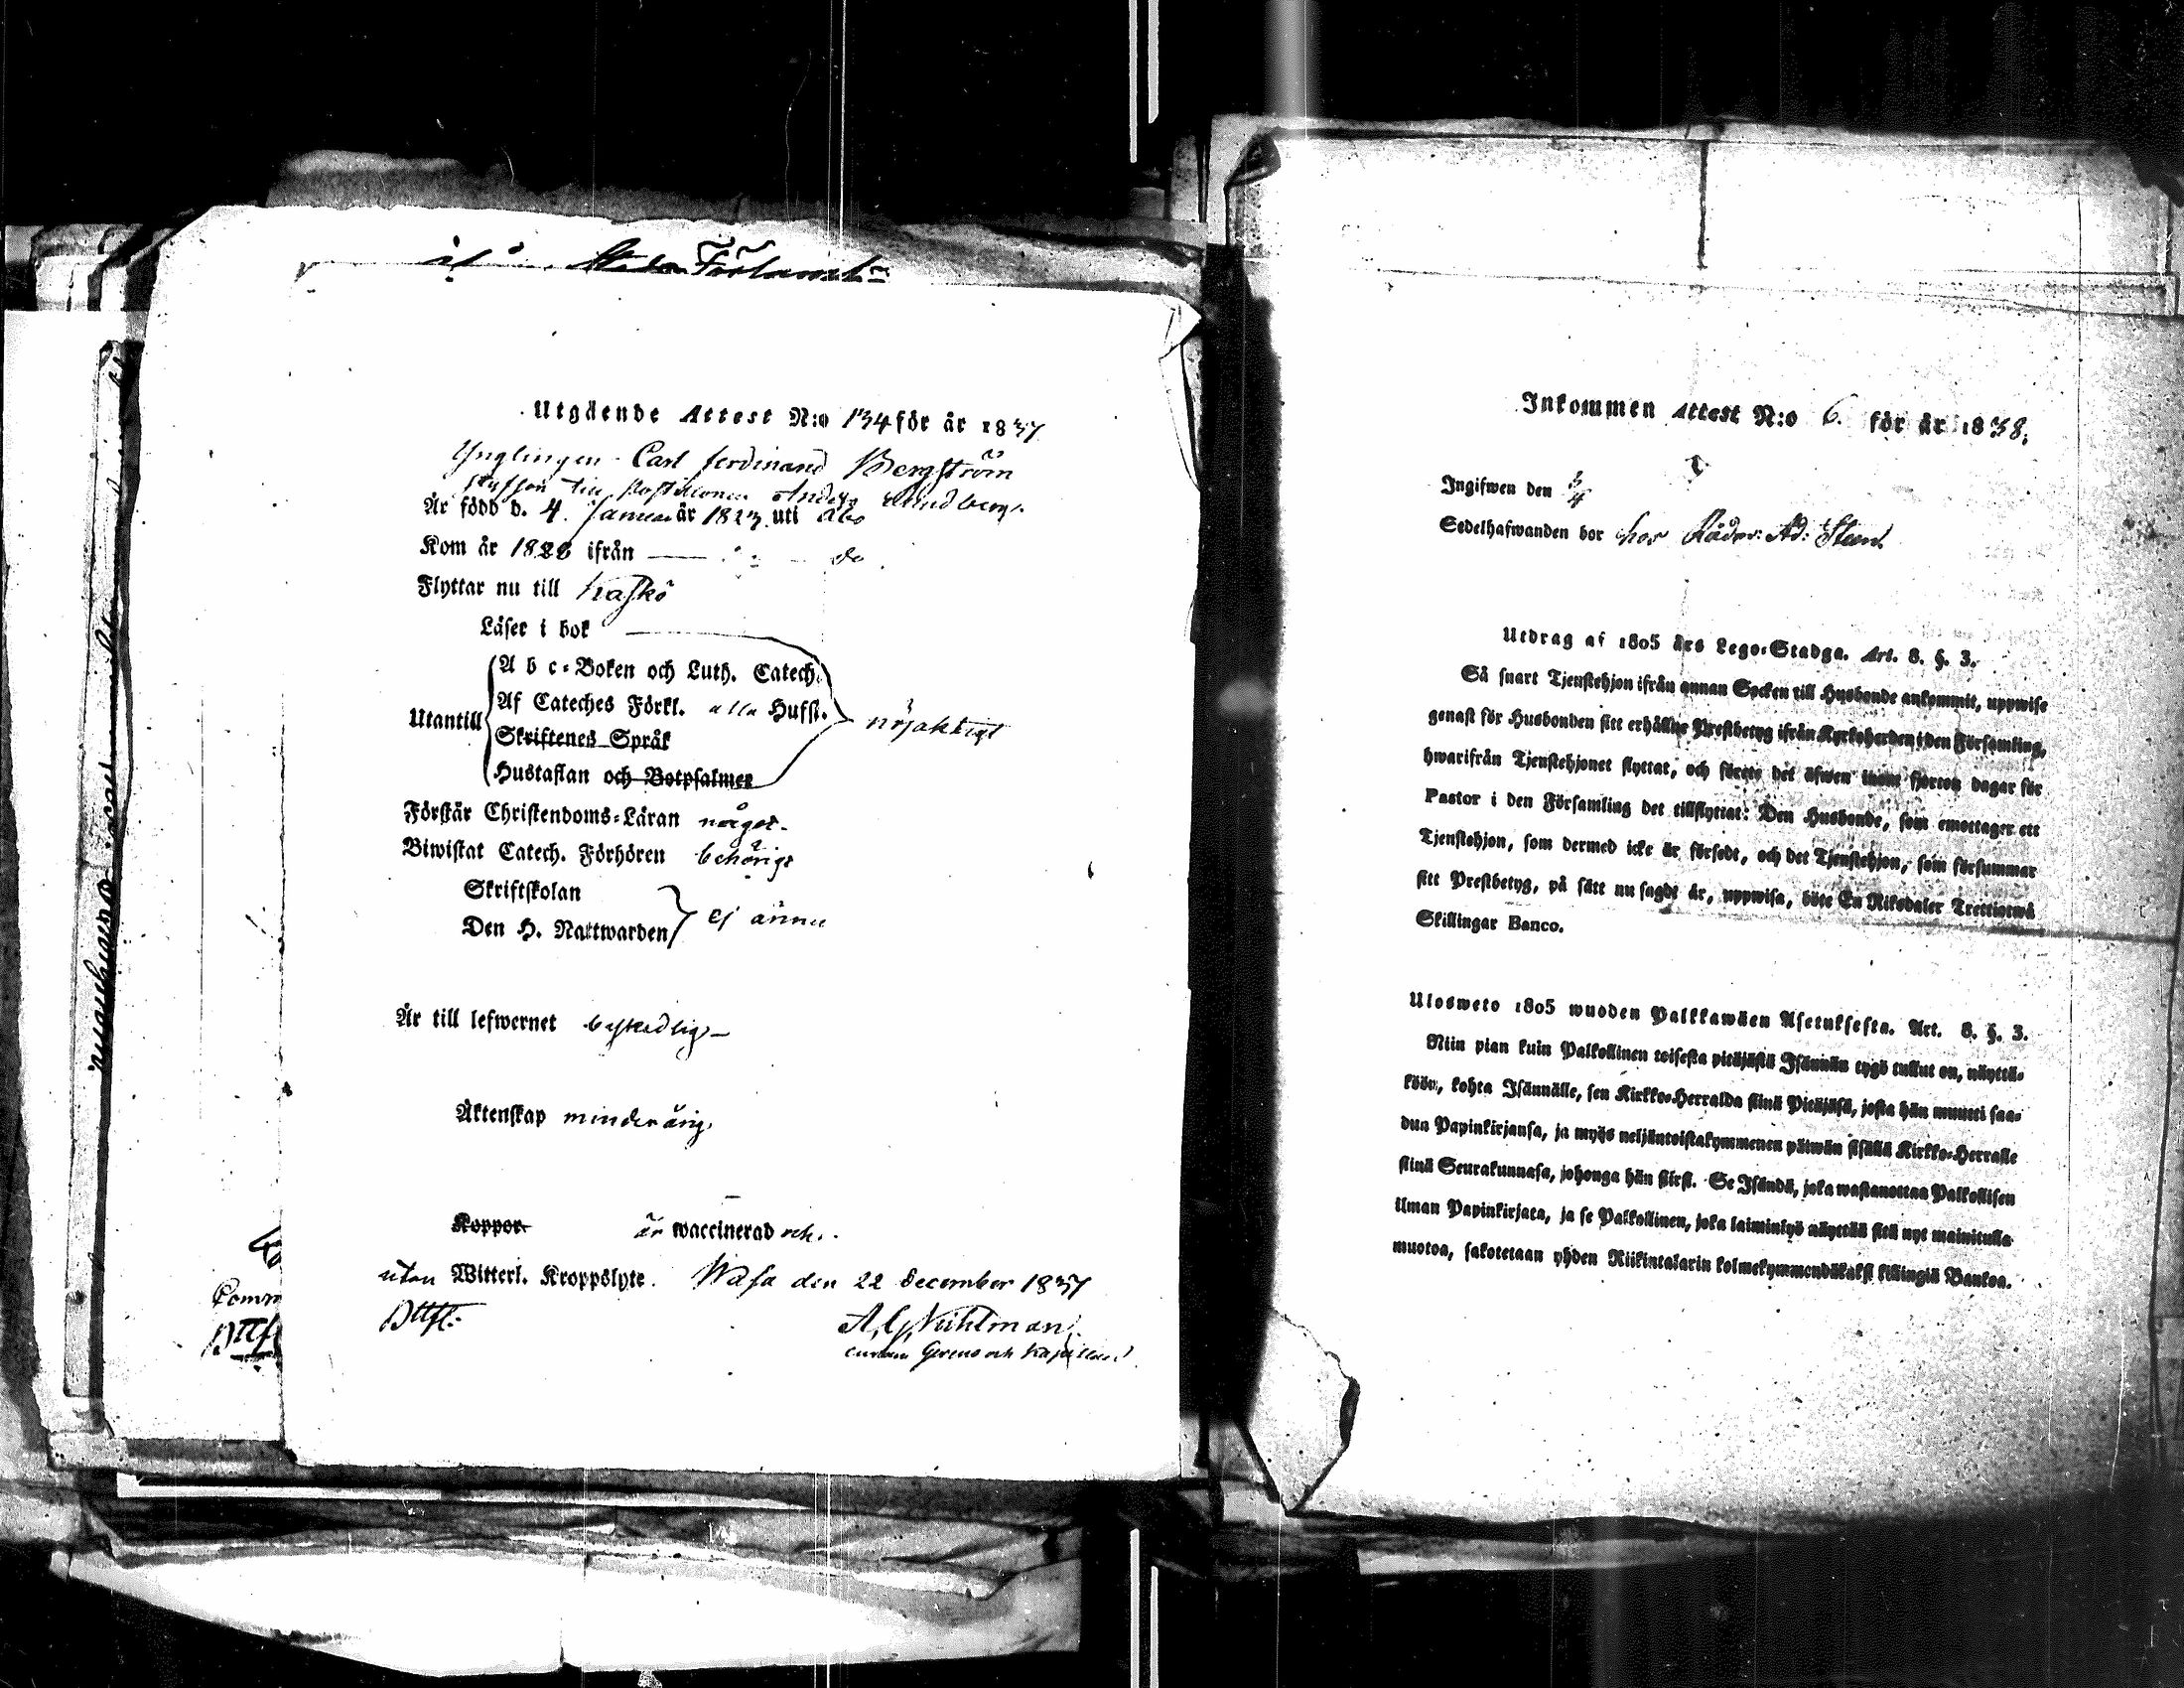 Utgående Attest N:o 134 för år 1837
Ynglingen Carl Ferdinand Bergström
styfson till Postiljonen Anders Lindberg.
Är född d. 4. Januari år 1823 uti Åbo
Kom år 1828 ifrån — do
Flyttar nu till Kaskö
Läser i bok
A b c-Boken och Luth. Catech.
Af Cateches Förkl. alla Hufst.
Utantill
nöjaktigt
Skriftenes Språk
Hustaflan och Botpsalmer
Förstår Christendoms-Läran något.
Biwistat Catech. Förhören behörigt
Skriftskolan
Den H. Nattwarden
ej ännu
Är till lefwernet beskedlig
Äktenskap minderårig.
Koppor är waccinerad och
utan Witterl. Kroppslyte. Wasa den 22 December 1837
Attst:
A, G, Wihlman.
Inkommen Attest N:o 6. för år 1838.
Ingifwen den 3/4
Sedelhafwanden bor hos Rådm: Ad: Steen.
Utdrag af 1805 års Lego-Stadga. Art. 8. §. 3.
Så snart Tjenstehjon ifrån annan Socken till Husbonde ankommit, uppwise
genast för Husbonden sitt erhållne Prestbetyg ifrån Kyrkoherden i den Församling,
hwarifrån Tjenstehjonet flyttat, och förete det äfwen inom fjorton dagar för
Pastor i den Församling det tillflyttat: Den Husbonde, som emottager ett
Tjenstehjon, som dermed icke är försedt, och det Tjenstehjon, som försummar
sitt Prestbetyg, på sätt nu sagdt är, uppwisa, böte En Riksdaler Trettiotwå
Skillingar Banco.
Ulosweto 1805 wuoden Palkkawäen Asetuksesta. Art. 8. §. 3.
Niin pian kuin Palkollinen toisesta pitäjästä Isännän tygö tullut on, näyttä-
köön, kohta Isännälle, sen Kirkko-Herralda siinä Pitäjäsä, josta hän muutti saa-
dun Papinkirjansa, ja myös neljäntoistakymmenen päiwän sisällä Kirkko-Herralle
siinä Seurakunnasa, johonga hän siirsi. Se Isändä, joka wastanottaa Palkollisen
ilman Papinkirjata, ja se Palkollinen, joka laiminlyö näyttää sitä nyt mainitulla
muotoa, sakotetaan yhden Riikintalarin kolmekymmendäkaksi killingiä Bankoa.